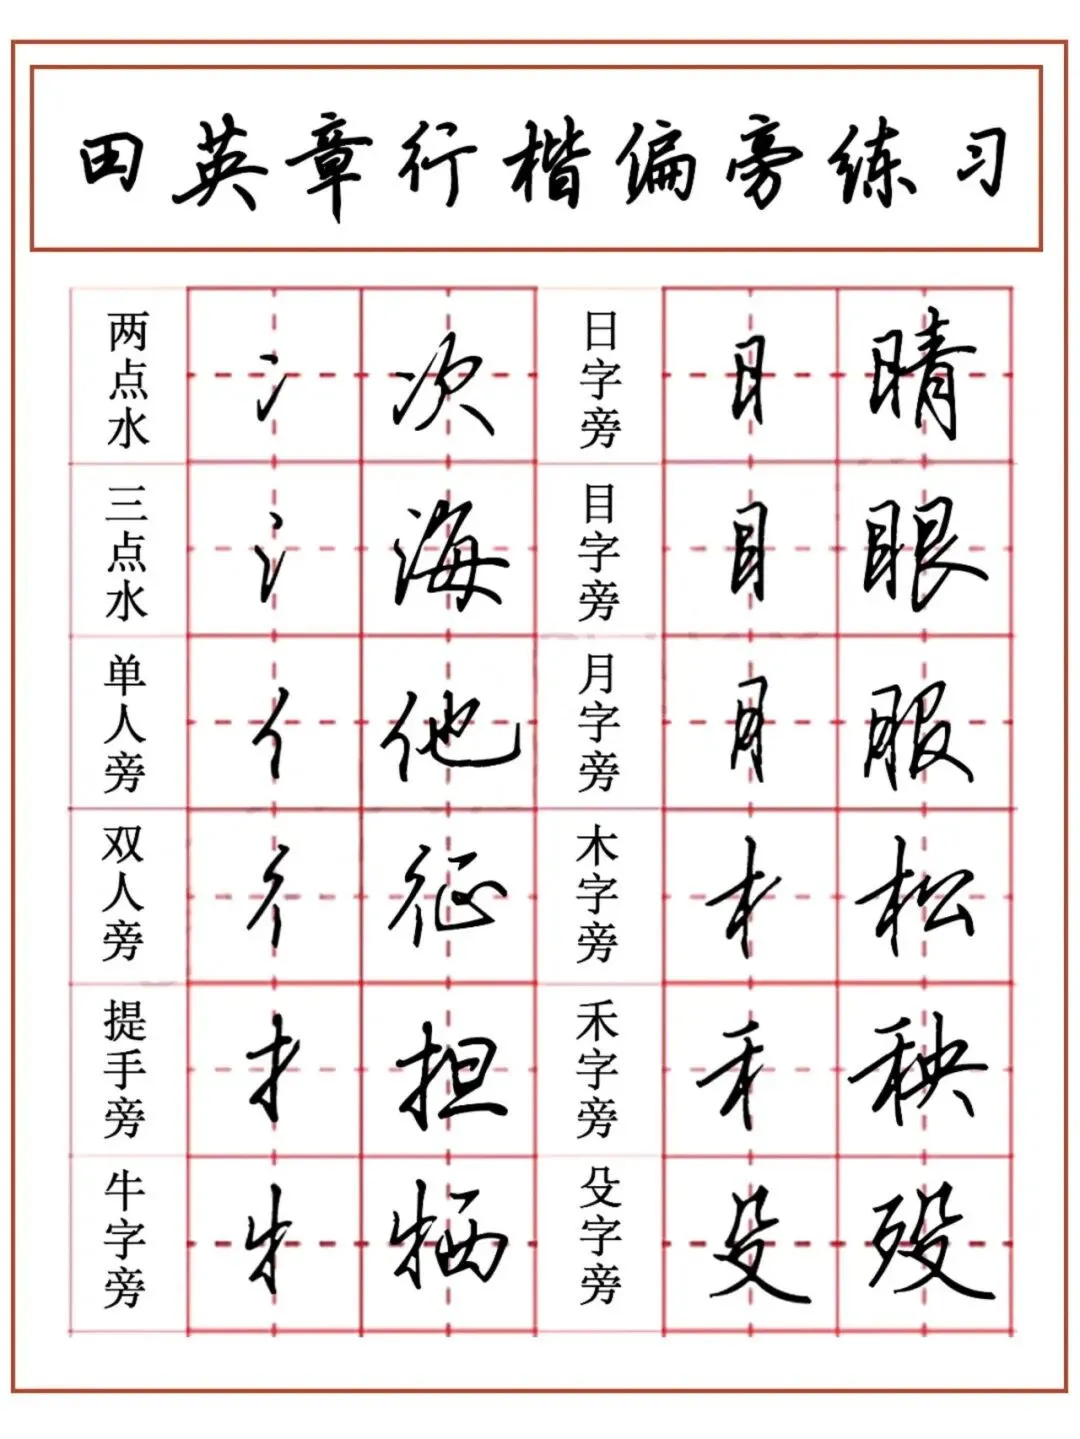 田英章行楷偏旁练习
两点水 冫 次 日字旁 日 晴
三点水 氵 海 目字旁 目 眼
单人旁 亻 他 月字旁 月 服
双人旁 彳 征 木字旁 木 松
提手旁 扌 担 禾字旁 禾 秧
牛字旁 牜 牺 殳字旁 殳 殁